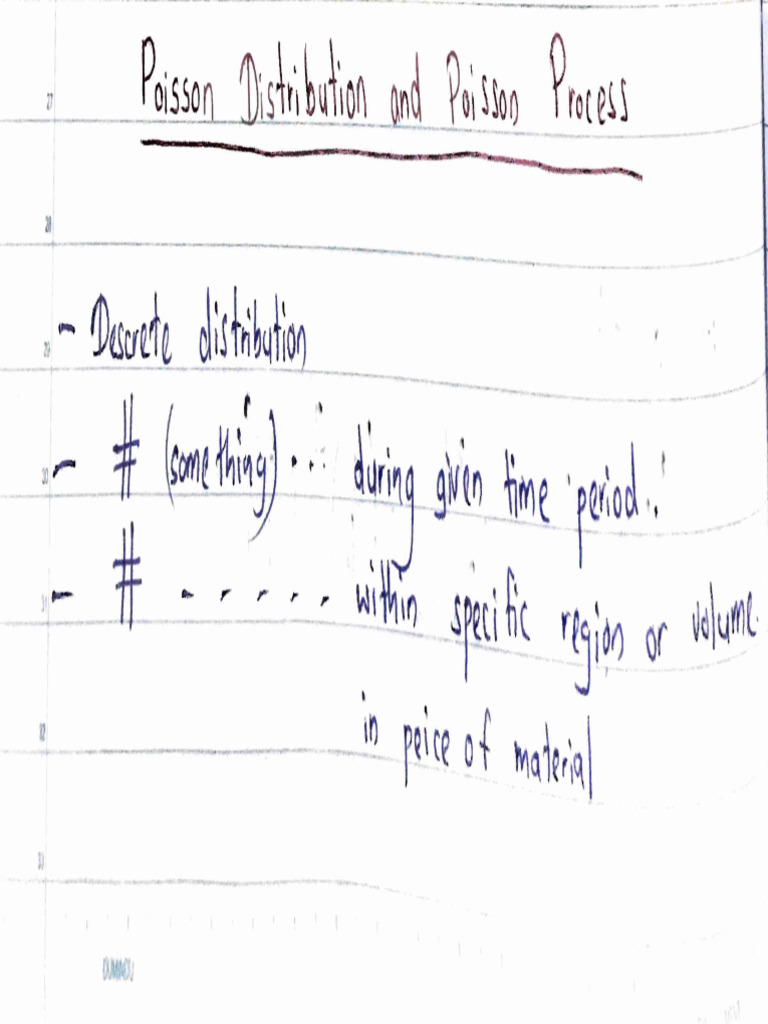 Poisson Distribution and Poisson Process
27
28
- Descrete distribution
29
- # (something) ... during given time period..
30
- # - - - - - within specific region or volume.
31
in peice of material
32
33